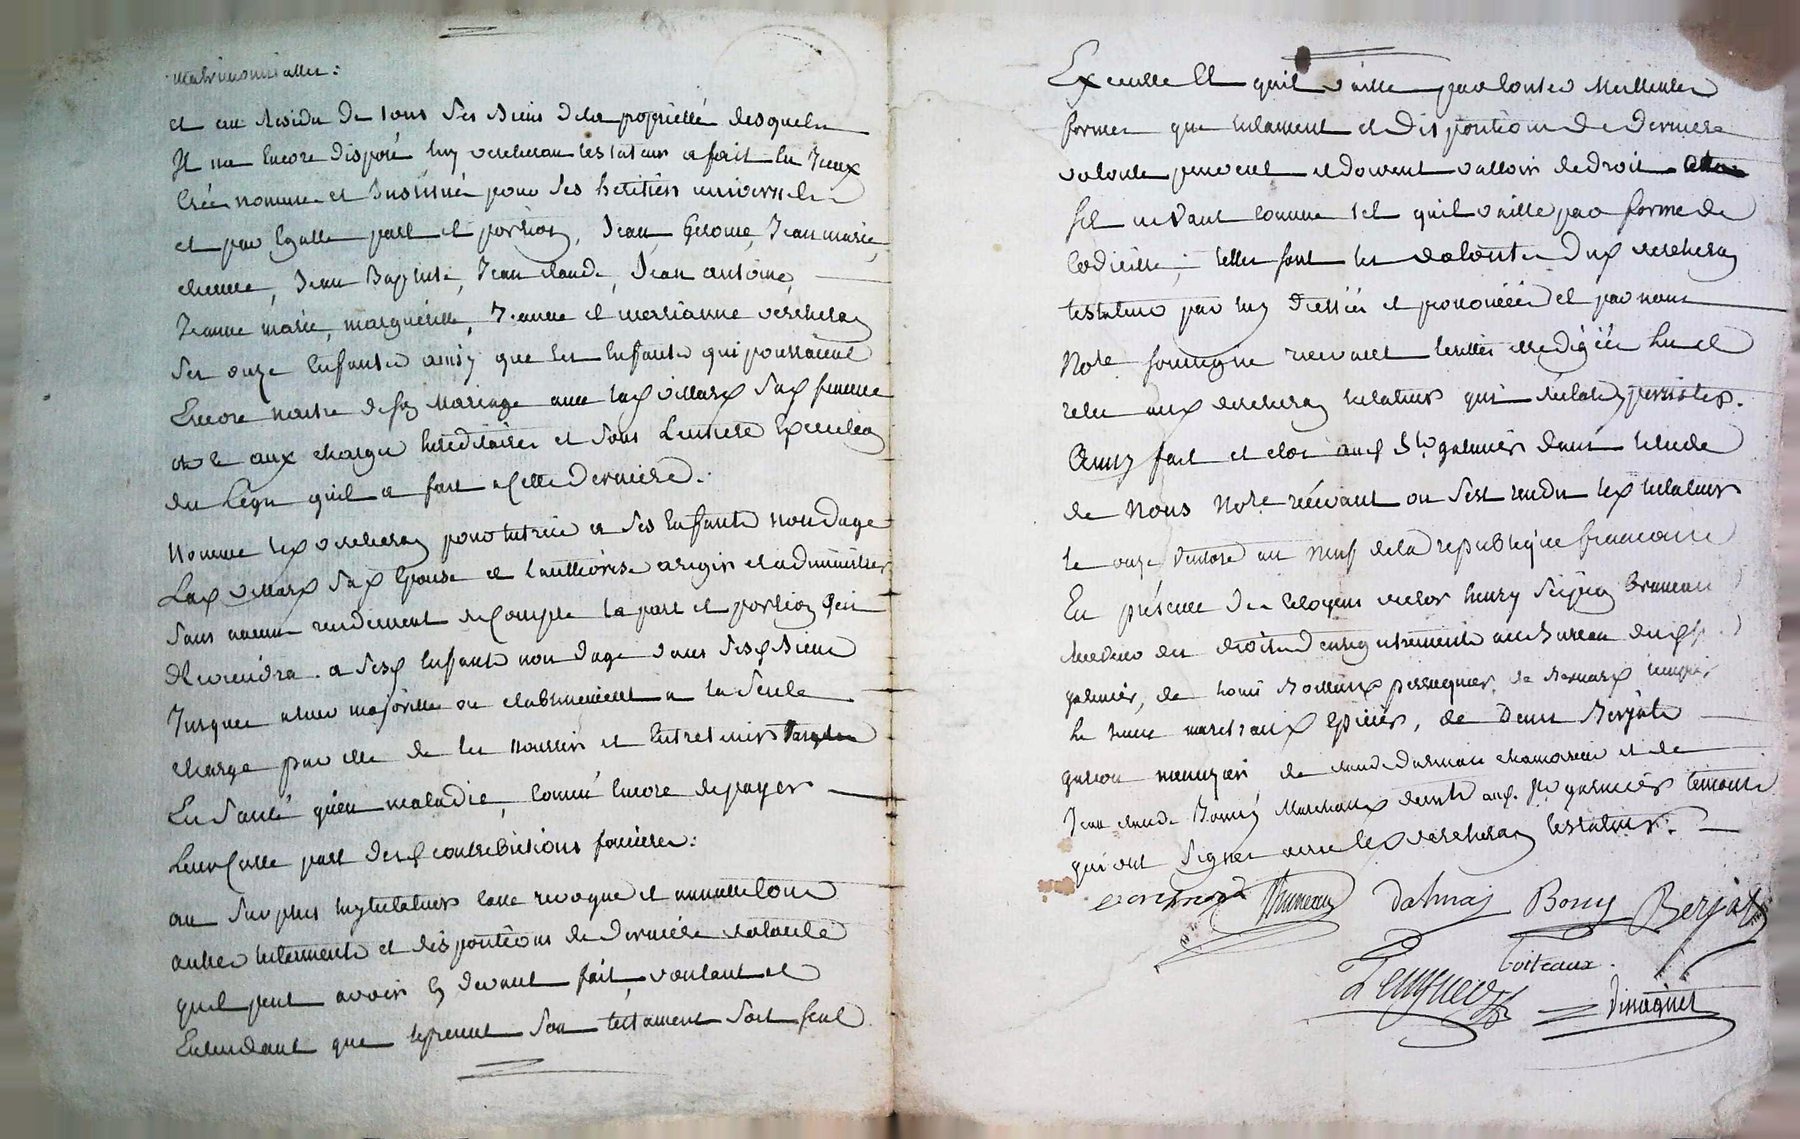 matrimonialles:
et au Residu de tous ses Biens dela proprietté desquels
Il na Encore disposé luy verchera testateur a fait lu Jceux
Créé nomme et Institué pour ses heritiers universels
et par Egalle part et portion, Jean Gerome, Jean marie,
etienne, Jean Baptiste, Jean claude, Jean antoine,
Jeanne marie, margueritte, Jeanne et marianne verchera
ses onze Enfants ainsy que les Enfants qui pourraient
Encore naitre de son Mariage avec lad villard sad femme
et aux charges hereditaires et sous Lentiere Execution
du Legs quil a fait a Cette Derniere.
Nomme led verchera pour tutrice a ses Enfants non dage
Lad villard sad Epouse et l'authorise a regir et administrer
sans aucun rendement de Compte la part et portion qui
Reviendra a sesd Enfants non dage dans sesd Biens
Jusques a leur majoritté ou etablissement a la seule
charge par elle de les nourrir et Entretenir
En Santé quen maladie, comme Encore de payer
Leur Cotte part desd contributions foncieres:
au surplus led testateur Casse revoque et annulle tous
autres testaments et dispositions de derniere volonté
quil peut avoir cy devant fait, voulant et
Entendant que le present son testament soit seul
Executté Et quil vaille par toutes Meilleures
formes que testament et dispositions de derniere
volonté peuvent et doivent valloir de droit
sil ne vaut comme tel quil vaille par forme de
Codicille; telles sont les volontés dud verchera
testateur par luy Dictées et prononcées et par nous
Note soussigné recevant icelles redigées lu et
relu aud verchera testateur qui declare y persister.
Ainsy fait et clos aud St galmier dans letude
de Nous Note recevant ou sest rendu led testateur
le onze Ventose an Neuf dela republique francaise
En présence des Citoyens victor henry Bruneau
receveur des droits denregistrements au Bureau dud St
galmier, de perruquier, de Bernard
le jeune marchand Epicier, de Denis Berjat
garcon, de claude dalmais et de
Jean claude Bonny Marchand demts aud. St galmier temoins
qui ont Signés avec led verchera testateur.
verchera Bruneau dalmaj Bony Berjat
Coiteaux.